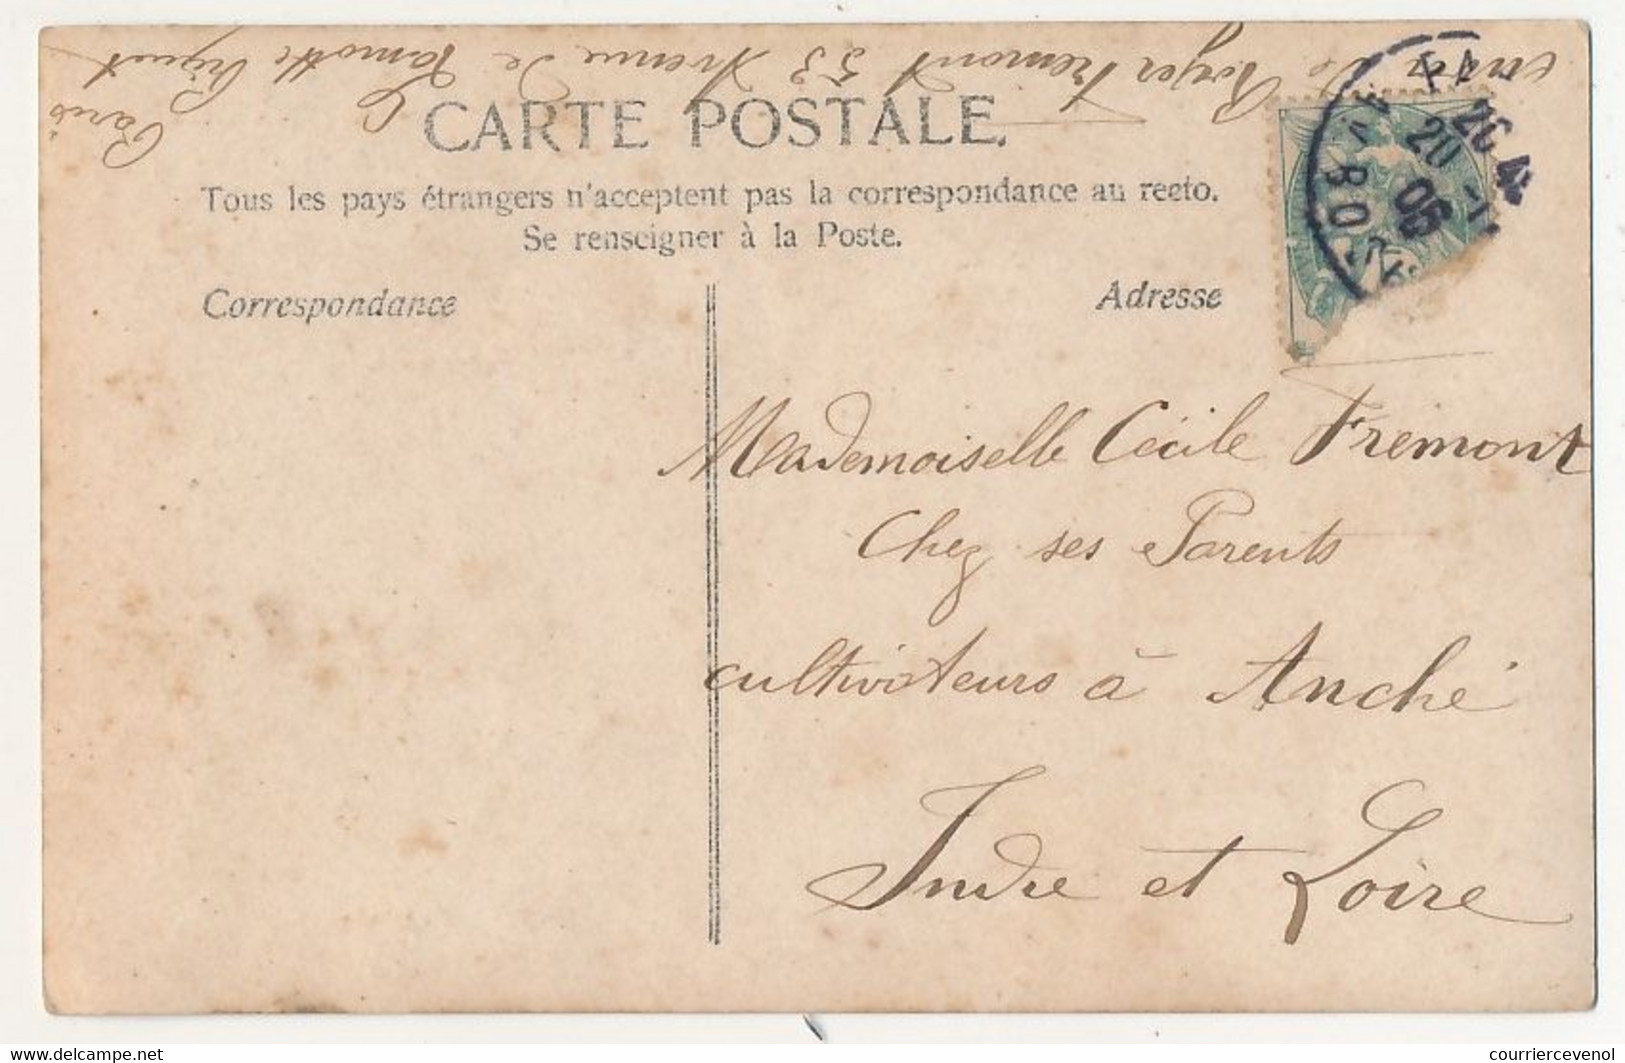 envoi de Roger Fremont 53 Avenue de Lamotte Piquet
Paris
CARTE POSTALE.
Tous les pays étrangers n'acceptent pas la correspondance au recto.
Se renseigner à la Poste.
Correspondance
Adresse
20 -1
05
Mademoiselle Cécile Fremont
Chez ses Parents
cultivateurs à Anché
Indre et Loire
www.delcampe.net
courriercevenol